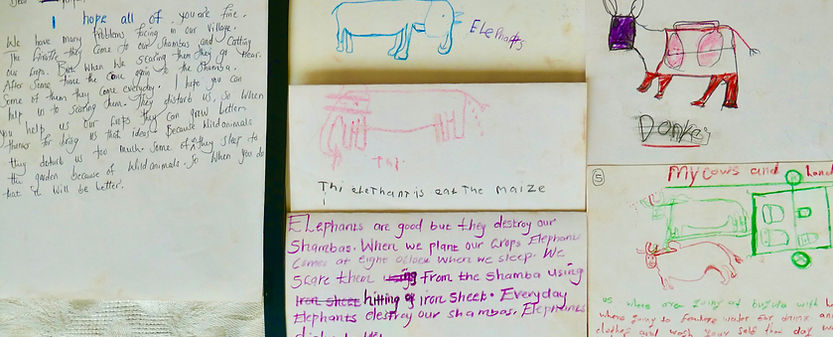 hope all of you are fine.
We have many problems facing in our village.
The Giraffe they come to our shambas and Cutting
our crops. But when we scaring them they go Near.
After some time the come again to the Shamba.
Some of them they come everyday. I hope you can
help us to scaring them. They disturb us. So When
You help us our crops they can grow better.
for bring us that ideas because wild animals
they disturb us too much some of they sleep to
the garden because of wild animals. So when you do
that it will be better.
Elephants
The
Thi elephant is eat The maize
ELephants are good but they destroy our
Shambas. When we plant our crops Elephants
Comes at eight oclock when we sleep. We
Scare them using From the Shamba using
Iron sheet hitting of iron sheet. Everyday
Elephants destroy our shambas. Elephants
Donkey
5
My cows and
us where over going at
where going to water For drink
clothes and wash your self that day